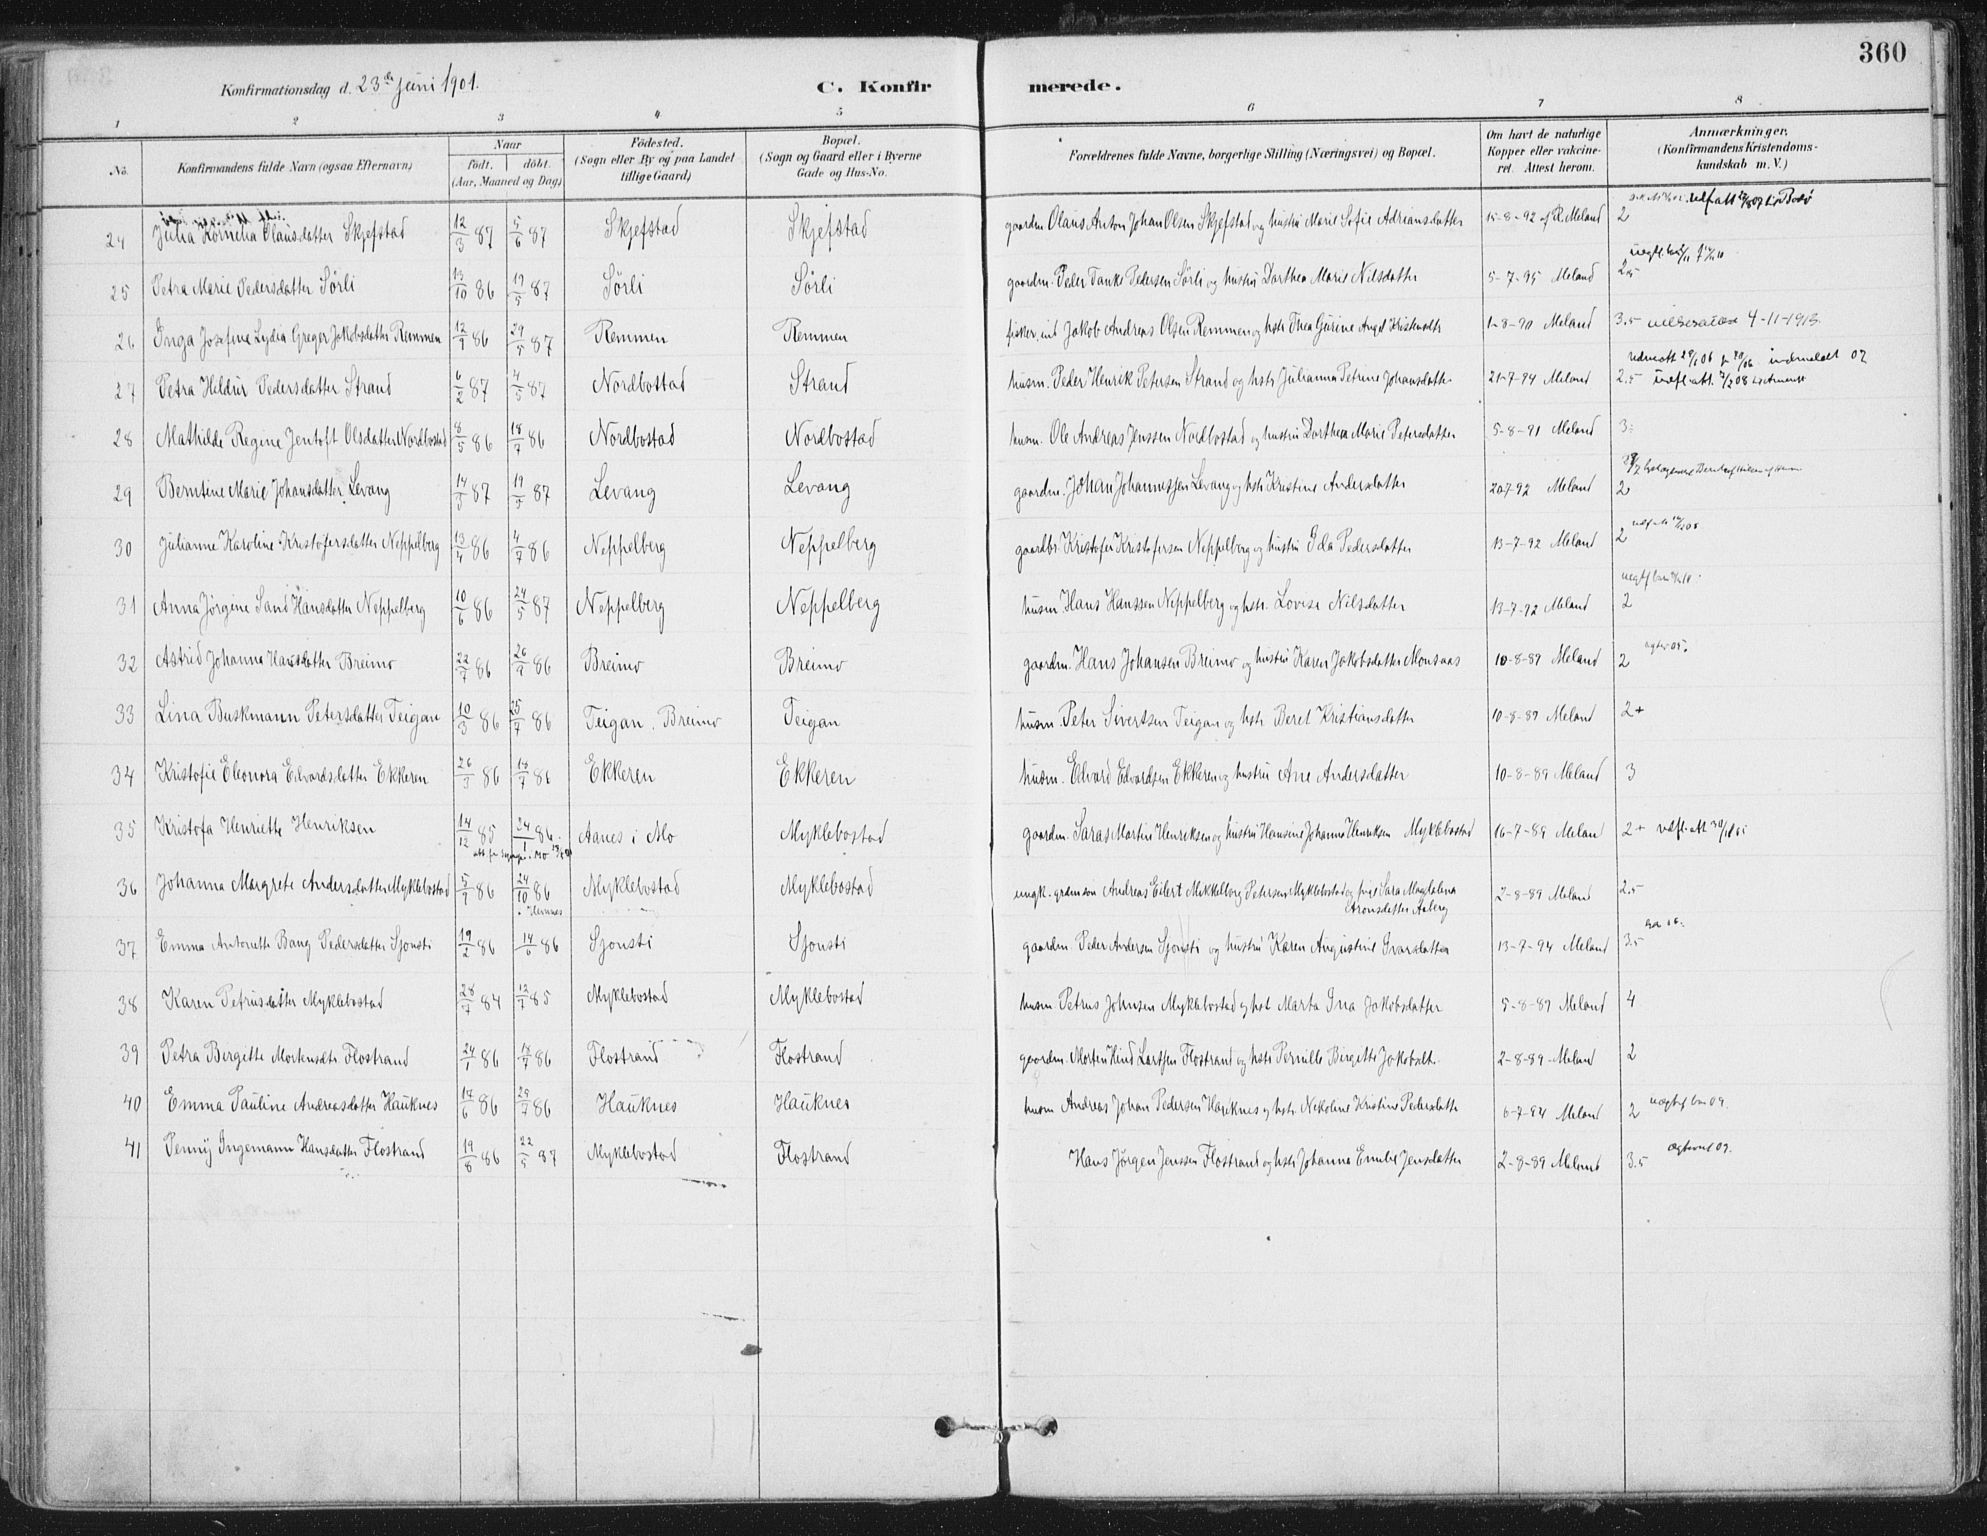 360
Konfirmationsdag d. 23de Juni 1901.
C. Konfirmerede.
1 2 3 4 5 6 7 8
No. Konfirmandens fulde Navn (ogsaa Efternavn) Naar födt. döbt. (Aar, Maaned og Dag) Födested. (Sogn eller By og paa Landet tillige Gaard) Bopæl. (Sogn og Gaard eller i Byerne Gade og Hus-No. Forældrenes fulde Navne, borgerlige Stilling (Næringsvei) og Bopæl. Om havt de naturlige Kopper eller vakcineret. Attest herom. Anmærkninger. (Konfirmandens Kristendomskundskab m. V.)
24 Julia Kornelia Olausdatter Skjefstad 12/3 87 5/6 87 Skjefstad Skjefstad gaardm. Olaus Anton Johan Olsen Skjefstad og hustru Marie Sofie Adriansdatter 15-8-92 af R. Meland 2
25 Petra Marie Pedersdatter Sörli 13/10 86 19/5 87 Sörli Sörli gaardm. Peder Tanke Pedersen Sörli og hustru Dorthea Marie Nilsdatter 5-7-95 Meland 2.5
26 Inga Josefine Lydia Greger Jakobsdatter Remmen 12/9 86 29/5 87 Remmen Remmen fisker, ind. Jakob Andreas Olsen Remmen og hstr Thea Gurine Angel Kristensdtr 1-8-90 Meland 3.5 4-11-1913.
27 Petra Hildur Pedersdatter Strand 6/2 87 4/5 87 Nordbostad Strand husm. Peder Henrik Petersen Strand og hstr Julianna Petrine Johansdattr. 21-7-94 Meland 2.5
28 Mathilde Regine Jentoft Olsdatter Nordbostad 8/5 86 18/7 86 Nordbostad Nordbostad husm. Ole Andreas Jenssen Nordbostad og hustru Dorthea Marie Petersdatter 5-8-91 Meland 3.
29 Berntine Marie Johansdatter Levang 14/3 87 19/5 87 Levang Levang gaardm. Johan Johannessen Levang og hstr Kristine Andersdatter 207-92 Meland 2
30 Julianne Karoline Kristofersdatter Neppelberg 13/4 86 4/7 86 Neppelberg Neppelberg gaardbr. Kristofer Kristofersen Neppelberg og hustru Ida Pedersdatter 13-7-92 Meland 2
31 Anna Jörgine Sand Hansdatter Neppelberg 10/6 86 24/5 87 Neppelberg Neppelberg husm Hans Hanssen Neppelberg og hstr. Lovise Nilsdatter 13-7-92 Meland 2
32 Astrid Johanna Hansdatter Breimo 22/7 86 26/9 86 Breimo Breimo gaardm. Hans Johansen Breimo og hustru Karen Jakobsdatter Monsaas 10-8-89 Meland 2
33 Lina Buskmann Petersdatter Teigan 10/3 86 25/7 86 Teigan, Breimo Teigan husm. Peter Sivertsen Teigan og hstr Beret Kristiansdatter 10-8-89 Meland 2+
34 Kristofie Eleonora Edvardsdatter Ekkeren 26/3 86 18/7 86 Ekkeren Ekkeren husm. Edvard Edvardsen Ekkeren og hustru Ane Andersdatter 10-8-89 Meland 3
35 Kristofa Henriette Henriksen 14/12 85 24/1 86 Aanes i Mo Myklebostad gaardm. Saras Martin Henriksen og hustru Hansine Johanna Henriksen Myklebostad 16-7-89 Meland 2+
36 Johanna Margrete Andersdatter Myklebostad 5/9 86 24/10 86 Myklebostad Myklebostad ungk. Andreas Eilert Mikkelborg Petersen Myklebostad og pige Sara Magdalena 2-8-89 Meland 2.5
Hemnes Aronsdatter Aaberg
37 Emma Antonette Bang Pedersdatter Sjonsti 19/2 86 14/6 86 Sjonsti Sjonsti gaardm. Peder Andersen Sjonsti og hustru Karen Augustine Ivarsdatter 13-7-94 Meland 3.5
38 Karen Petrusdatter Myklebostad 28/7 84 12/7 85 Myklebostad Myklebostad husm Petrus Johnsen Myklebostad og hst Marta Ina Jakobsdatter 5-8-89 Meland 4
39 Petra Birgitte Mortensdtr Flostrand 24/1 86 18/7 86 Flostrand Flostrand gaardm. Morten Hind Larssen Flostrand og hstr Pernille Birgitte Jakobsdt. 2-8-89 Meland 2
40 Emma Pauline Andreasdatter Hauknes 17/6 86 25/7 86 Hauknes Hauknes husm Andreas Johan Pedersen Hauknes og hstr. Nikoline Kristine Pedersdattr 6-7-94 Meland 2
41 Penny Ingemann Hansdatter Flostrand 19/8 86 22/5 87 Myklebostad Flostrand Hans Jörgen Jenssen Flostrand og hstr Johanna Emilie Jensdatter 2-8-89 Meland 3.5